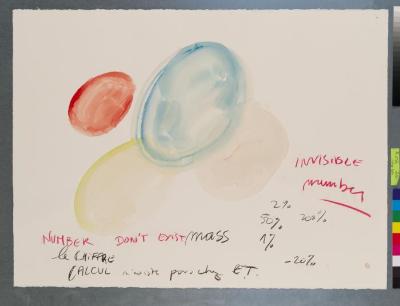 INVISIBLE
number
2%
50% 200%
NUMBER DON'T EXIST/MASS 1%
le CHIFFRE -20%
CALCUL n'existe pas chez E.T.